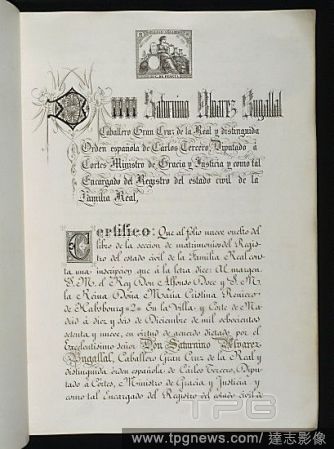 Don Saturnino Alvarez Bugallal
Caballero Gran Cruz de la Real y distinguida
Orden española de Carlos Tercero, Diputado à
Cortes Ministro de Gracia y Justicia y como tal
Encargado del Registro del estado civil de la
Familia Real,
Certifico: Que al folio nueve vuelto del
libro de la seccion de matrimonios del Regis-
tro del estado civil de la Familia Real cons-
ta una inscripcion que à la letra dice: Al margen.
S. M. el Rey Don Alfonso Doce y S. M.
la Reina Doña Maria Cristina Reniero
de Habsbourg =2= En la Villa y Corte de Ma-
drid à diez y seis de Diciembre de mil ochocientos
setenta y nueve, en virtud de acuerdo dictado por el
Excelentisimo señor Don Saturnino Alvarez
Bugallal, Caballero Gran Cruz de la Real y
distinguida orden española de Carlos Tercero, Dipu-
tado à Cortes, Ministro de Gracia y Justicia y
como tal Encargado del Registro del estado civil de
TPG
www.tpgnews.com/ 達志影像